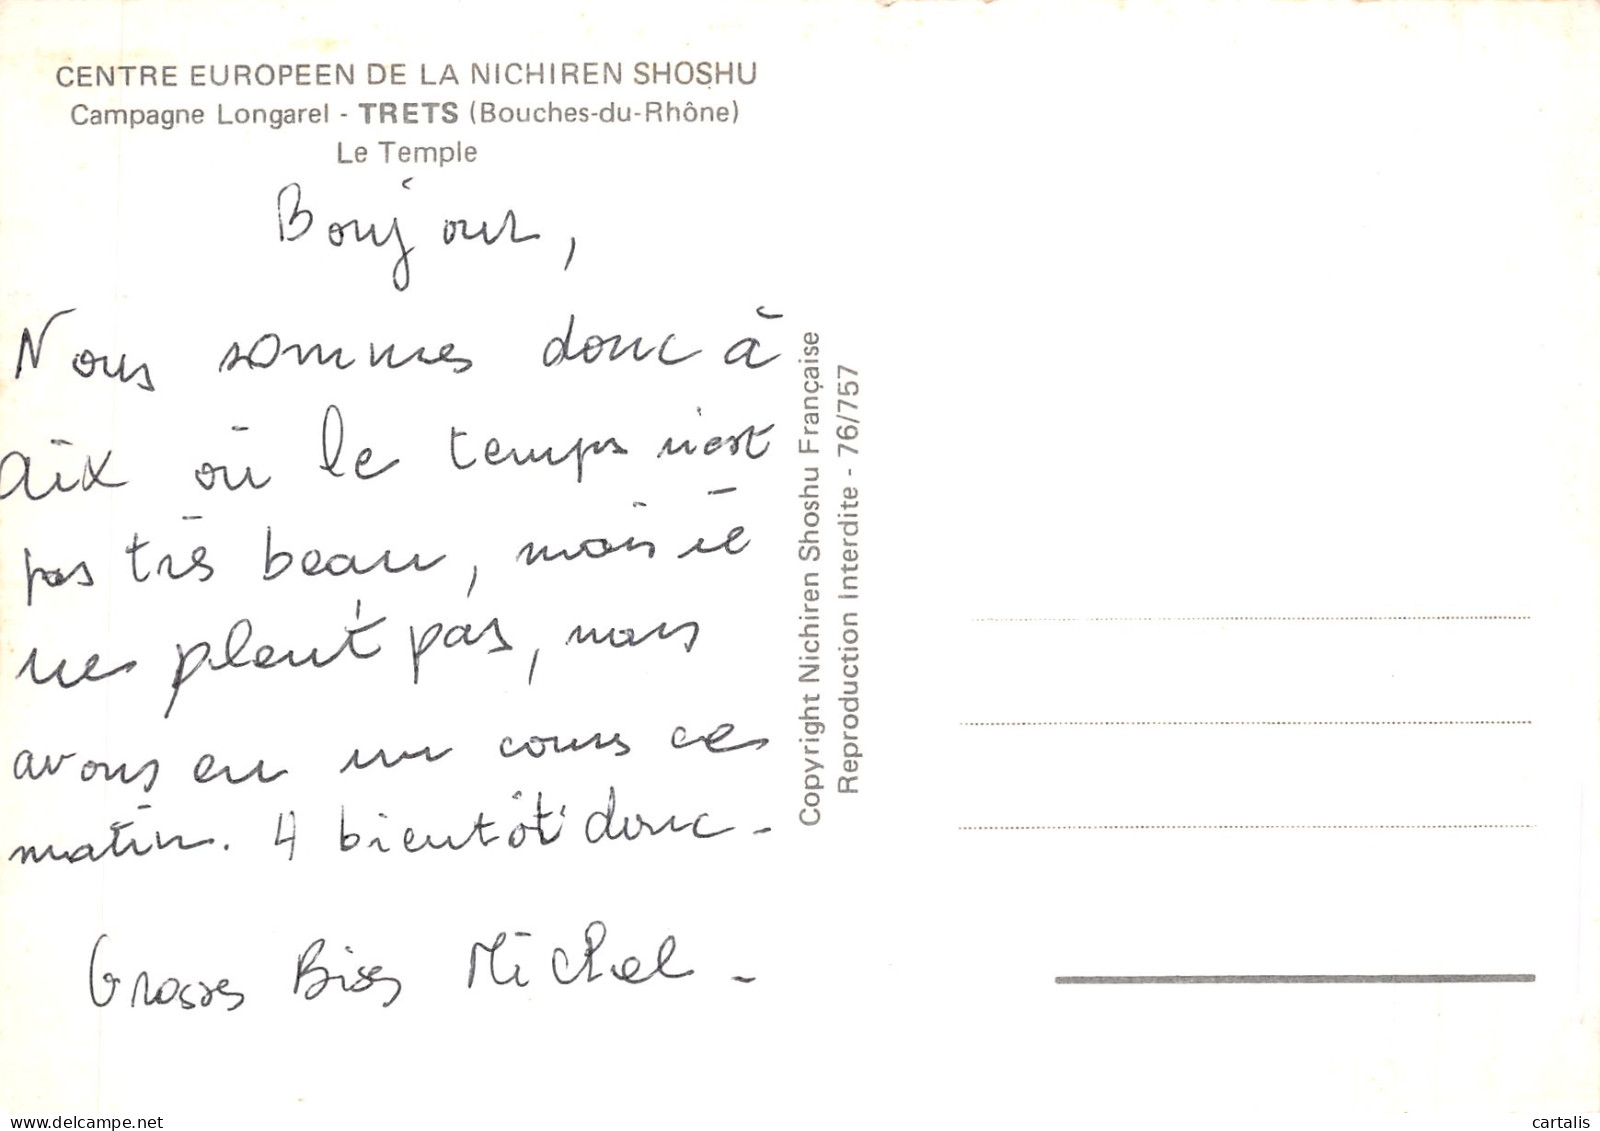 CENTRE EUROPEEN DE LA NICHIREN SHOSHU
Campagne Longarel - TRETS (Bouches-du-Rhône)
Le Temple
Bonjour,
Nous sommes donc à
aix où le temps n'est
pas très beau, mais il
ne pleut pas, nous
avons eu un cours ce
matin. A bientôt donc -
Grosses Bises Michel -
Copyright Nichiren Shoshu Française
Reproduction Interdite - 76/757
delcampe.net
cartalis